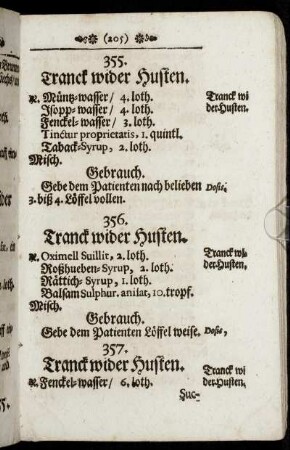 (205)
355.
Tranck wider Husten.
℞. Müntz-wasser/ 4. loth.
Tranck wi
der-Husten.
Jsopp-wasser/ 4. loth.
Fenckel-wasser/ 3. loth.
Tinctur proprietatis, 1. quintl.
Taback-Syrup, 2. loth.
Misch.
Gebrauch.
Gebe dem Patienten nach belieben
Dosis,
3. biß 4. Löffel vollen.
356.
Tranck wider Husten.
℞. Oximell Suillit, 2. loth.
Tranck wi-
der-Husten,
Roßhueben-Syrup, 2. loth.
Rättich-Syrup, 1. loth.
Balsam Sulphur. anisat, 10. tropf.
Misch.
Gebrauch.
Gebe dem Patienten Löffel weise.
Dosis,
357.
Tranck wider Husten.
℞. Fenckel-wasser/ 6. loth.
Tranck wi
der-Husten.
Suc-